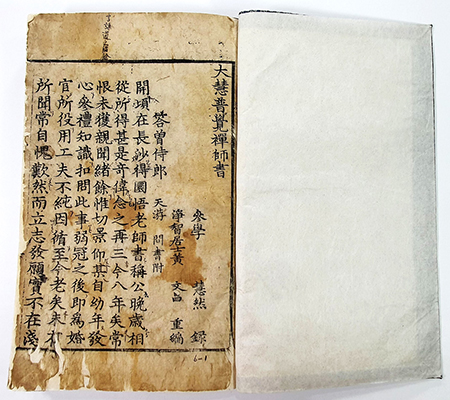 大慧普覺禪師書
參學 慧然 錄
淨智居士黃 文 重編
答曾侍郎 天游 問書附
開頃在長沙得圜悟老師書稱公晚歲相
從所得甚是奇偉念之再三今八年矣常
恨未獲親聞緒餘惟切景仰某自幼年發
心參禮知識扣問此事弱冠之後即為婚
官所役用工夫不純因循至今老矣未有
所聞常自愧歎然而立志發願實不在淺
6-1